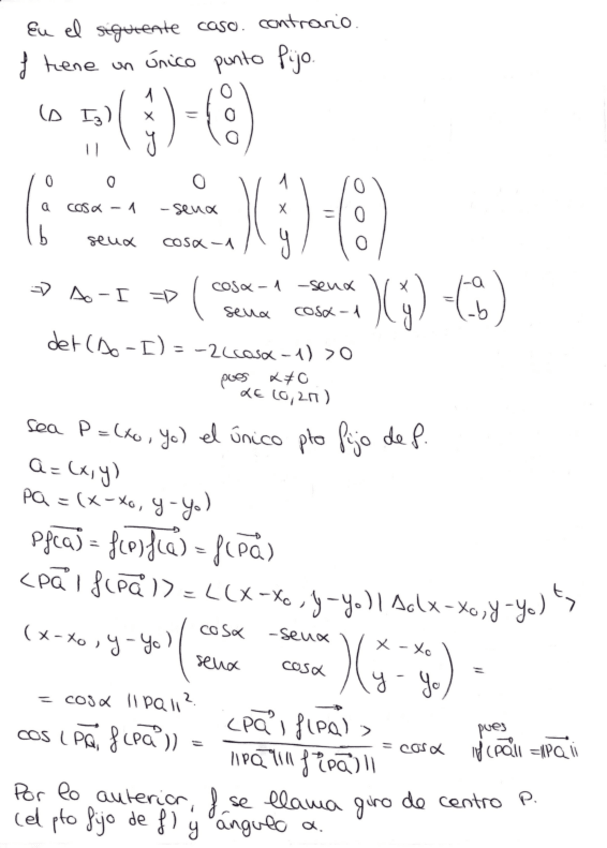 En el ~~siguiente~~ caso. contrario.
f tiene un único punto fijo.
(Δ I₃) (1 x y) = (0 0 0)
||
(0 0 0; a cosα - 1 -senα; b senα cosα-1) (1 x y) = (0 0 0)
⇒ Δ₀ - I ⇒ (cosα-1 -senα; senα cosα-1) (x y) = (-a -b)
det(Δ₀-I) = -2(cosα-1) > 0
pues α≠0
α∈(0,2π)
Sea P=(x₀,y₀) el único pto fijo de f.
Q=(x,y)
PQ = (x-x₀, y-y₀)
Pf(Q) = f(P)f(Q) = f(PQ)
<PQ | f(PQ)> = <(x-x₀, y-y₀) | Δ₀(x-x₀, y-y₀)ᵗ>
(x-x₀, y-y₀) (cosα -senα; senα cosα) (x-x₀ y-y₀) =
= cosα ||PQ||².
cos(PQ, f(PQ)) = <PQ | f(PQ)> / ||PQ|| || f(PQ)|| = cosα pues ||f(PQ)|| = ||PQ||
Por lo anterior, f se llama giro de centro P.
(el pto fijo de f) y ángulo α.